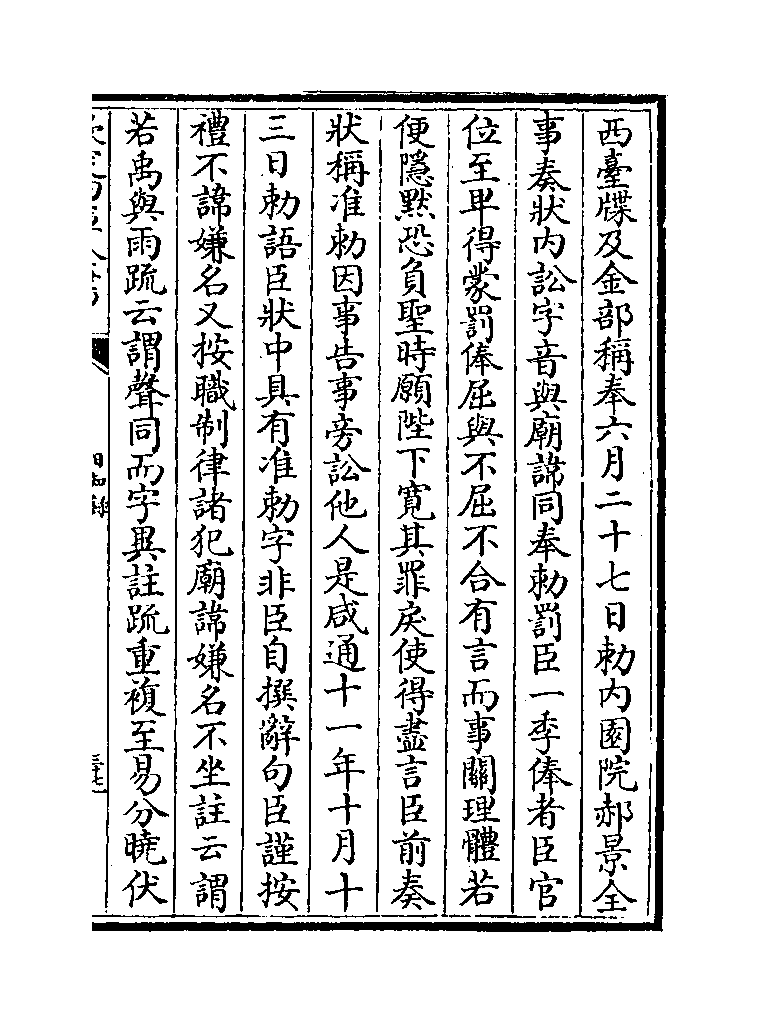 西臺牒及金部稱奉六月二十七日勅內園院郝景全
事奏狀內訟字音與廟諱同奉勅罰臣一季俸者臣官
位至卑得蒙罰俸屈與不屈不合有言而事關理體若
便隱黙恐負聖時願陛下寬其罪戾使得盡言臣前奏
狀稱准勅因事告事旁訟他人是咸通十一年十月十
三日勅語臣狀中具有准勅字非臣自撰辭句臣謹按
禮不諱嫌名又按職制律諸犯廟諱嫌名不坐註云謂
若禹與雨疏云謂聲同而字異註疏重複至易分曉伏
日知錄